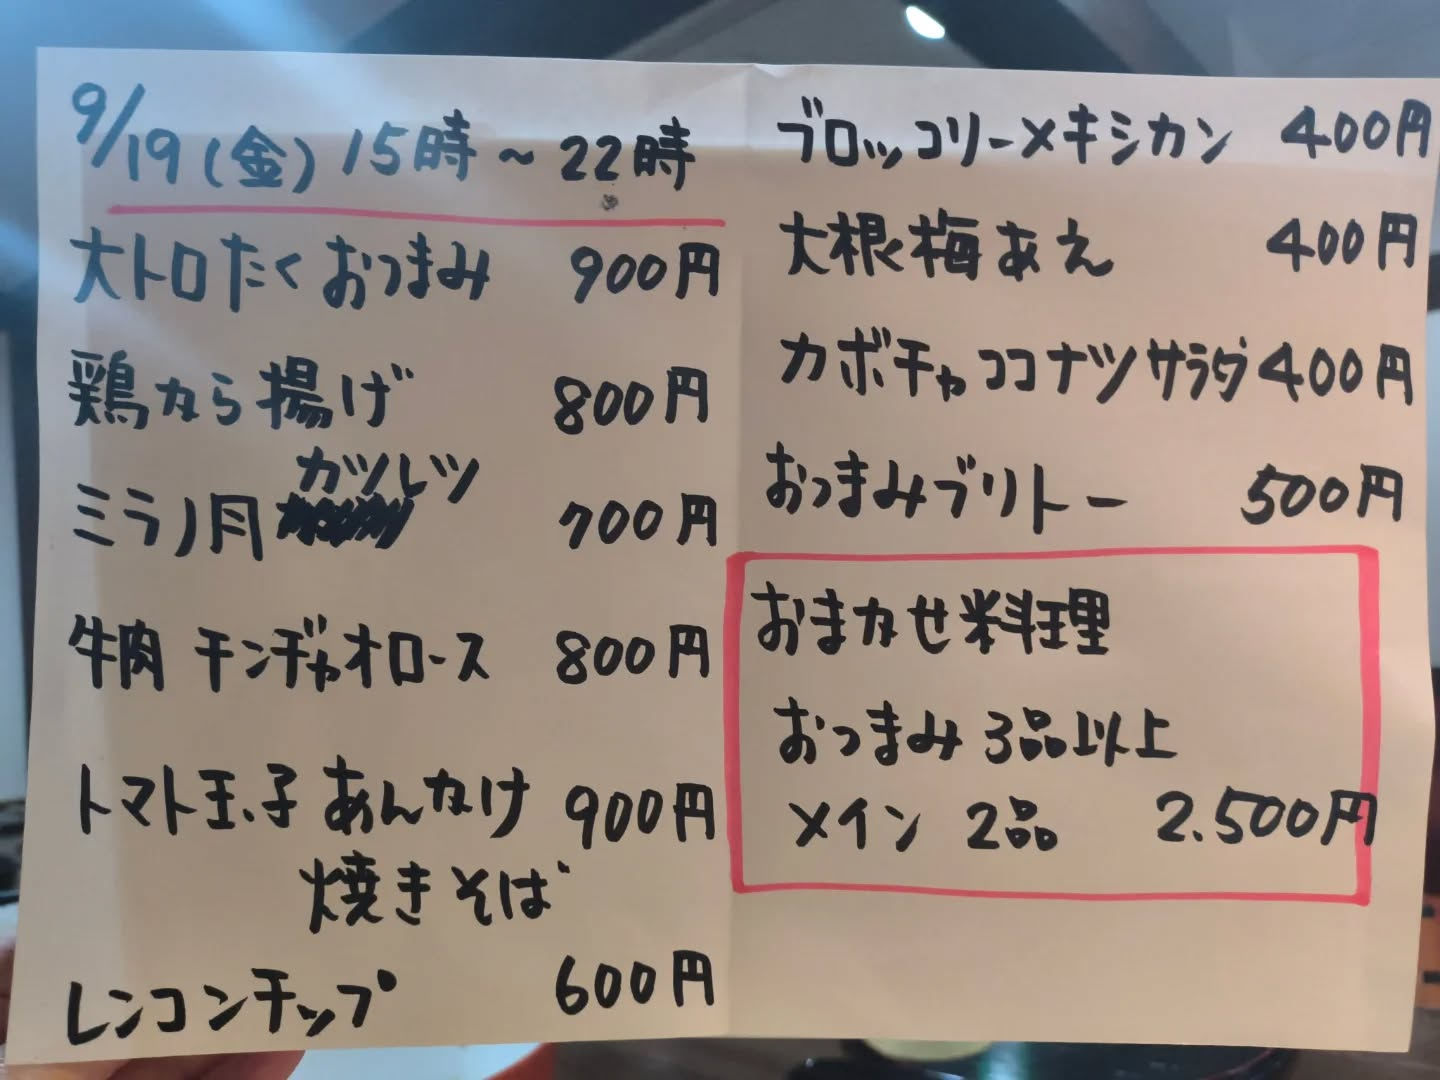 9/19(金)15時~22時
大トロたくおつまみ 900円
鶏から揚げ 800円
カツレツ
ミラノ風 700円
牛肉 チンヂャオロース 800円
トマト玉子あんかけ 900円
焼きそば
レンコンチップ 600円
ブロッコリーメキシカン 400円
大根梅あえ 400円
カボチャココナツサラダ 400円
おつまみブリトー 500円
おまかせ料理
おつまみ3品以上
メイン 2品 2.500円